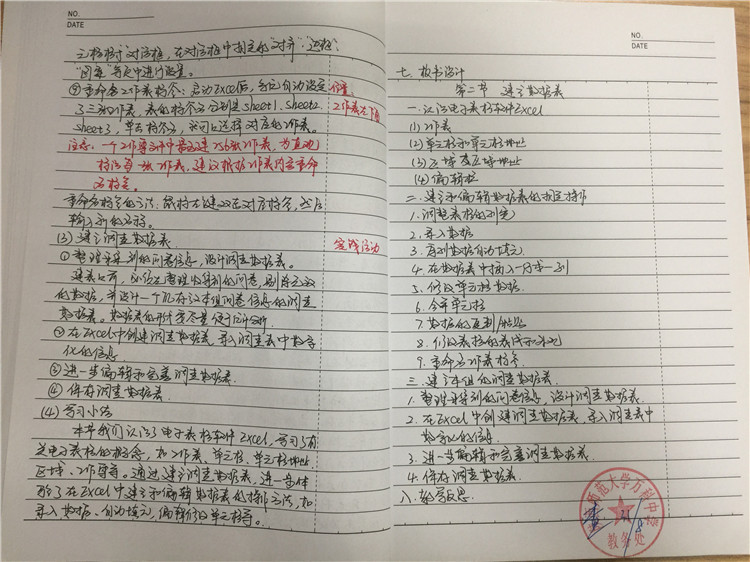 NO.
DATE
元格格式"对话框,在对话框中指定的"对齐""边框"
"图案"等处中进行设置。
⑨重命名工作表标签:启动Excel后,系统自动设定
了三张工作表,表的标签名分别是sheet1、sheet2、
sheet3,单击标签名,就可以选择对应的工作表。
位置
工作表左下角
注意:一个工作簿文件中最多建256张工作表,为直观
标识每一张工作表,建议根据工作表内容重命
名标签。
重命名标签的方法:鼠标右键双击对应标签,然后
输入新的名称。
(3)建立调查数据表
实践活动
①整理采集到的问卷信息,设计调查数据表。
建表之前,必须先整理收集到的问卷,剔除无效
的数据,并设计一个能存放本组问卷信息的调查
数据表。数据表的形式要尽量便于统计分析
②在Excel中创建调查数据表,录入调查表中数字
化的信息
③进一步编辑和完善调查数据表.
④保存调查数据表.
(4)学习小结
本节我们认识了电子表格软件Excel,学习了有
关电子表格的概念,如工作表、单元格、单元格地址、
区域、工作簿等。通过建立调查数据表,进一步体
验了在Excel中建立和编辑数据表的操作方法,如
录入数据、自动填充,编辑修改单元格等。
NO.
DATE
七、板书设计
第二节 建立数据表
一.认识电子表格软件Excel
(1)工作表
(2)单元格和单元格地址
(3)区域及区域地址
(4)编辑栏
二.建立和编辑数据表的相关操作
1.调整表格的列宽
2.录入数据
3.有规数据自动填充.
4.在数据表中插入一行或一列
5.修改单元格数据.
6.合并单元格
7.数据的复制/粘贴
8.修改表格的表线和字体
9.重命名工作表标签.
三.建立本组的调查数据表.
1.整理采集到的问卷信息,设计调查数据表.
2.在Excel中创建调查数据表,录入调查表中
数字化的信息.
3.进一步编辑和完善调查数据表.
4.保存调查数据表
八.教学反思
师范大学万科中学
教务处
11/8